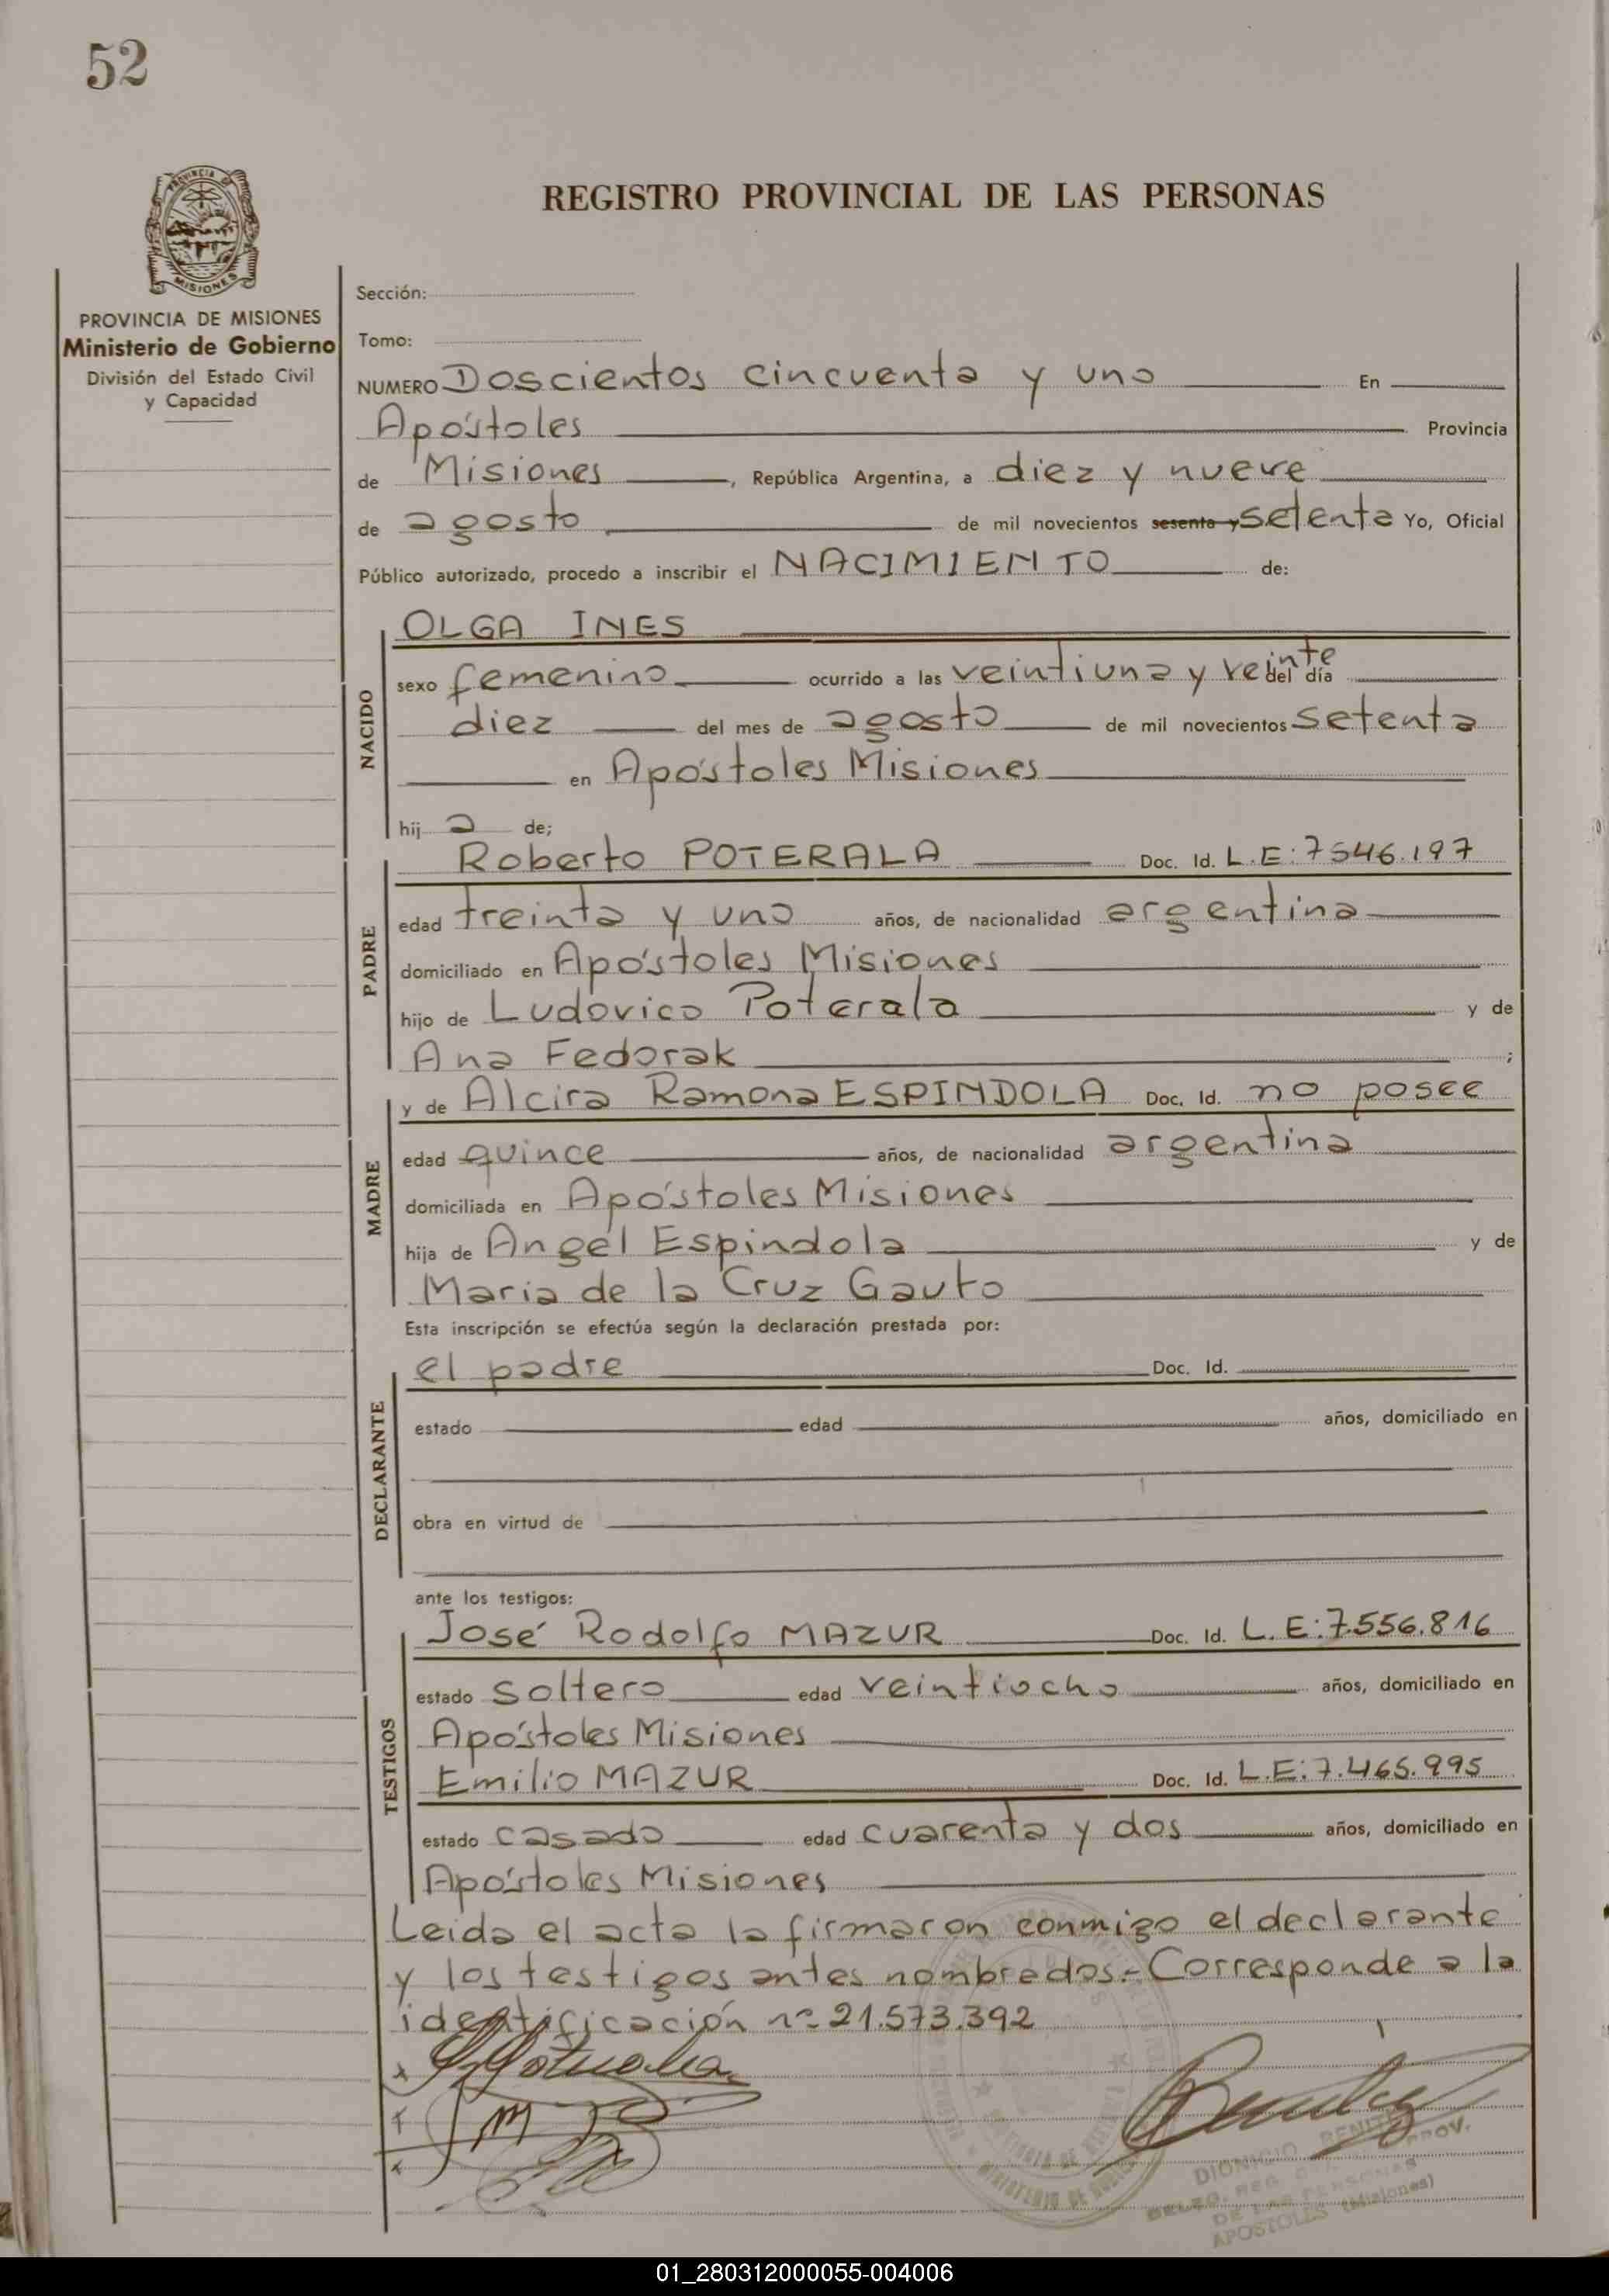 52
REGISTRO PROVINCIAL DE LAS PERSONAS
PROVINCIA DE MISIONES
Ministerio de Gobierno
División del Estado Civil
y Capacidad
Sección:
Tomo:
NUMERO Doscientos cincuenta y uno En
Apóstoles Provincia
de Misiones, República Argentina, a diez y nueve
de agosto de mil novecientos sesenta y setenta Yo, Oficial
Público autorizado, procedo a inscribir el NACIMIENTO de:
NACIDO
OLGA INES
sexo femenino ocurrido a las veintiuna y veinte del día
diez del mes de agosto de mil novecientos setenta
en Apóstoles Misiones
hij a de;
PADRE
Roberto POTERALA Doc. Id. L.E: 7546.197
edad treinta y uno años, de nacionalidad argentina
domiciliado en Apóstoles Misiones
hijo de Ludovico Poterala y de
Ana Fedorak ;
MADRE
y de Alcira Ramona ESPINDOLA Doc. Id. no posee
edad quince años, de nacionalidad argentina
domiciliada en Apóstoles Misiones
hija de Angel Espindola y de
Maria de la Cruz Gauto
Esta inscripción se efectúa según la declaración prestada por:
DECLARANTE
el padre Doc. Id.
estado edad años, domiciliado en
obra en virtud de
ante los testigos:
TESTIGOS
José Rodolfo MAZUR Doc. Id. L.E: 7.556.816
estado soltero edad veintiocho años, domiciliado en
Apóstoles Misiones
Emilio MAZUR Doc. Id. L.E: 7.465.995
estado casado edad cuarenta y dos años, domiciliado en
Apóstoles Misiones
Leida el acta la firmaron conmigo el declarante
y los testigos antes nombrados.- Corresponde a la
identificación nº 21.573.392
DIONICIO BENITEZ
DE LAS PERSONAS
APOSTOLES (Misiones)
01_280312000055-004006